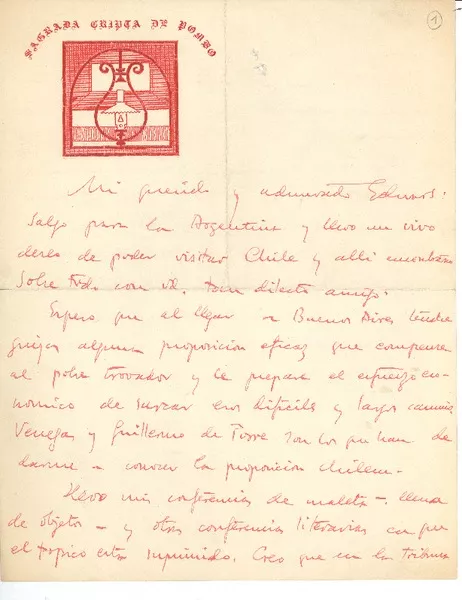 SAGRADA CRIPTA DE POMBO
1
Mi querido y admirado Edwards:
Salgo para la Argentina y llevo un vivo
deseo de poder visitar Chile y allí
sobre todo con vd. tan dilecto amigo.
Espero que al llegar a Buenos Aires tendré
quizá alguna proposición eficaz que compense
al pobre trovador y le prepare el esfuerzo eco-
nómico de surcar esos difíciles y largos caminos
Venegas y Guillermo de Torre son los que han de
darme a conocer la proposición chilena.
Llevo mis conferencias de maleta - llena
de objetos - y otras conferencias literarias en que
el tópico está suprimido. Creo que en la tribuna